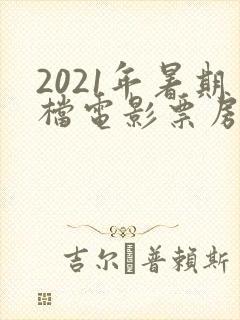 2021年暑期
檔電影票房
吉尔·普賴斯